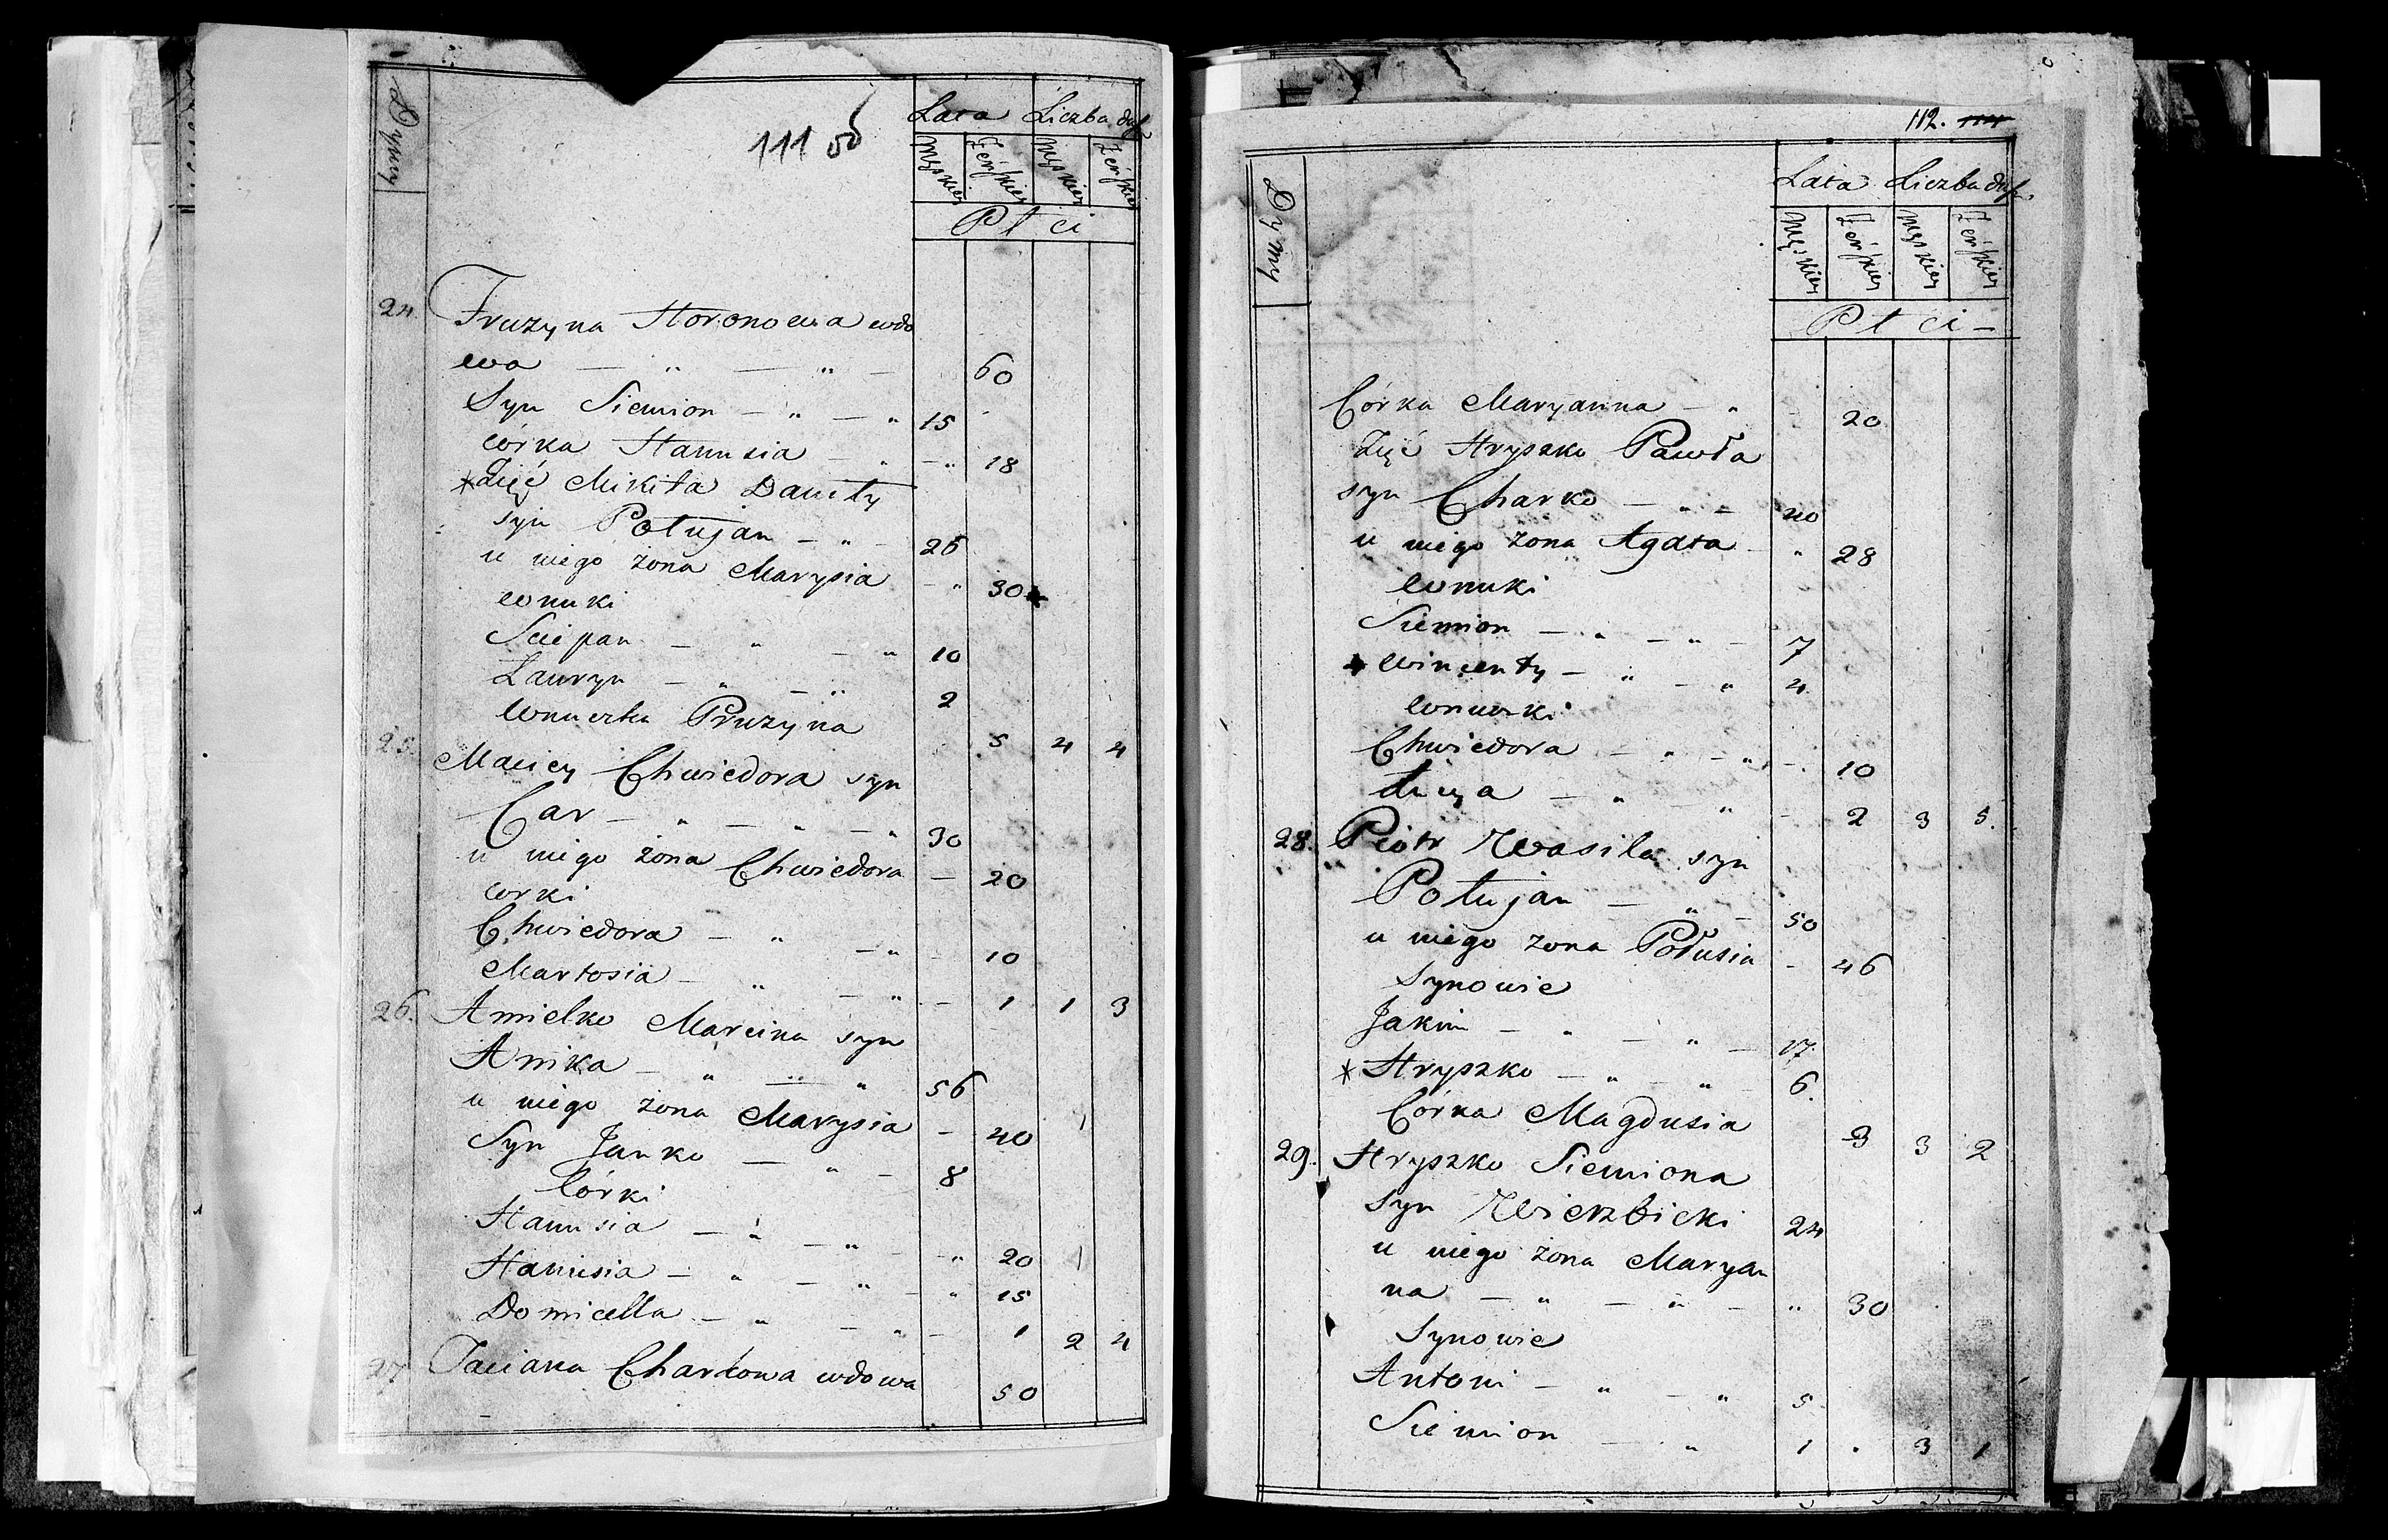 111 об
Dymy
Lata Liczba dusz
Męskiey Żeńskiey Męskiey Żeńskiey
Płci
24 Fruzyna Horonowa wdo
wa — " — " — 60
Syn Siemion — " — " 15
córka Hanusia — " — " 18
*Zięć Mikita Daniły
syn Potujan — " — 25
u niego żona Marysia — " 30
wnuki
Sciepan — " — " 10
Lauryn — " — " 2
Wnuczka Pruzyna 5 4 4
25. Maciey Chwiedora syn
Car — " — " — " 30
u niego żona Chwiedora — 20
corki
Chwiedora — " — " — 10
Martosia — " — " — 1 1 3
26. Amielko Marcina syn
Anika — " — " 56
u niego żona Marysia — 40
Syn Janko — " — 8
Córki
Hanusia — " — " — " 20
Hanusia — " — " — " 15
Domicella — " — " — 1 2 4
27 Taciana Charkowa wdowa 50
112.
Dymy
Lata Liczba dusz
Męskiey Żeńskiey Męskiey Żeńskiey
Płci —
Córka Maryanna — " — 20
Zięć Hryszko Pawła
syn Charko — " — 40
u niego żona Agata — " 28
wnuki
Siemion — " — " — 7
* Wincenty — " — " 4
wnuczki
Chwiedora — " — " — 10
— " — " — 2 3 5.
28. Piotr Wasila syn
Potujan — " — 50
u niego żona Połusia — 46
Synowie
Jakim — " — " — 17
* Hryszko — " — " — 6.
Córka Magdusia 3 3 2
29. Hryszko Siemiona
syn Wierzbicki 24
u niego żona Maryan
na — " — " — " 30
Synowie
Antoni — " — " 5
Siemion — " 1 . 3 1